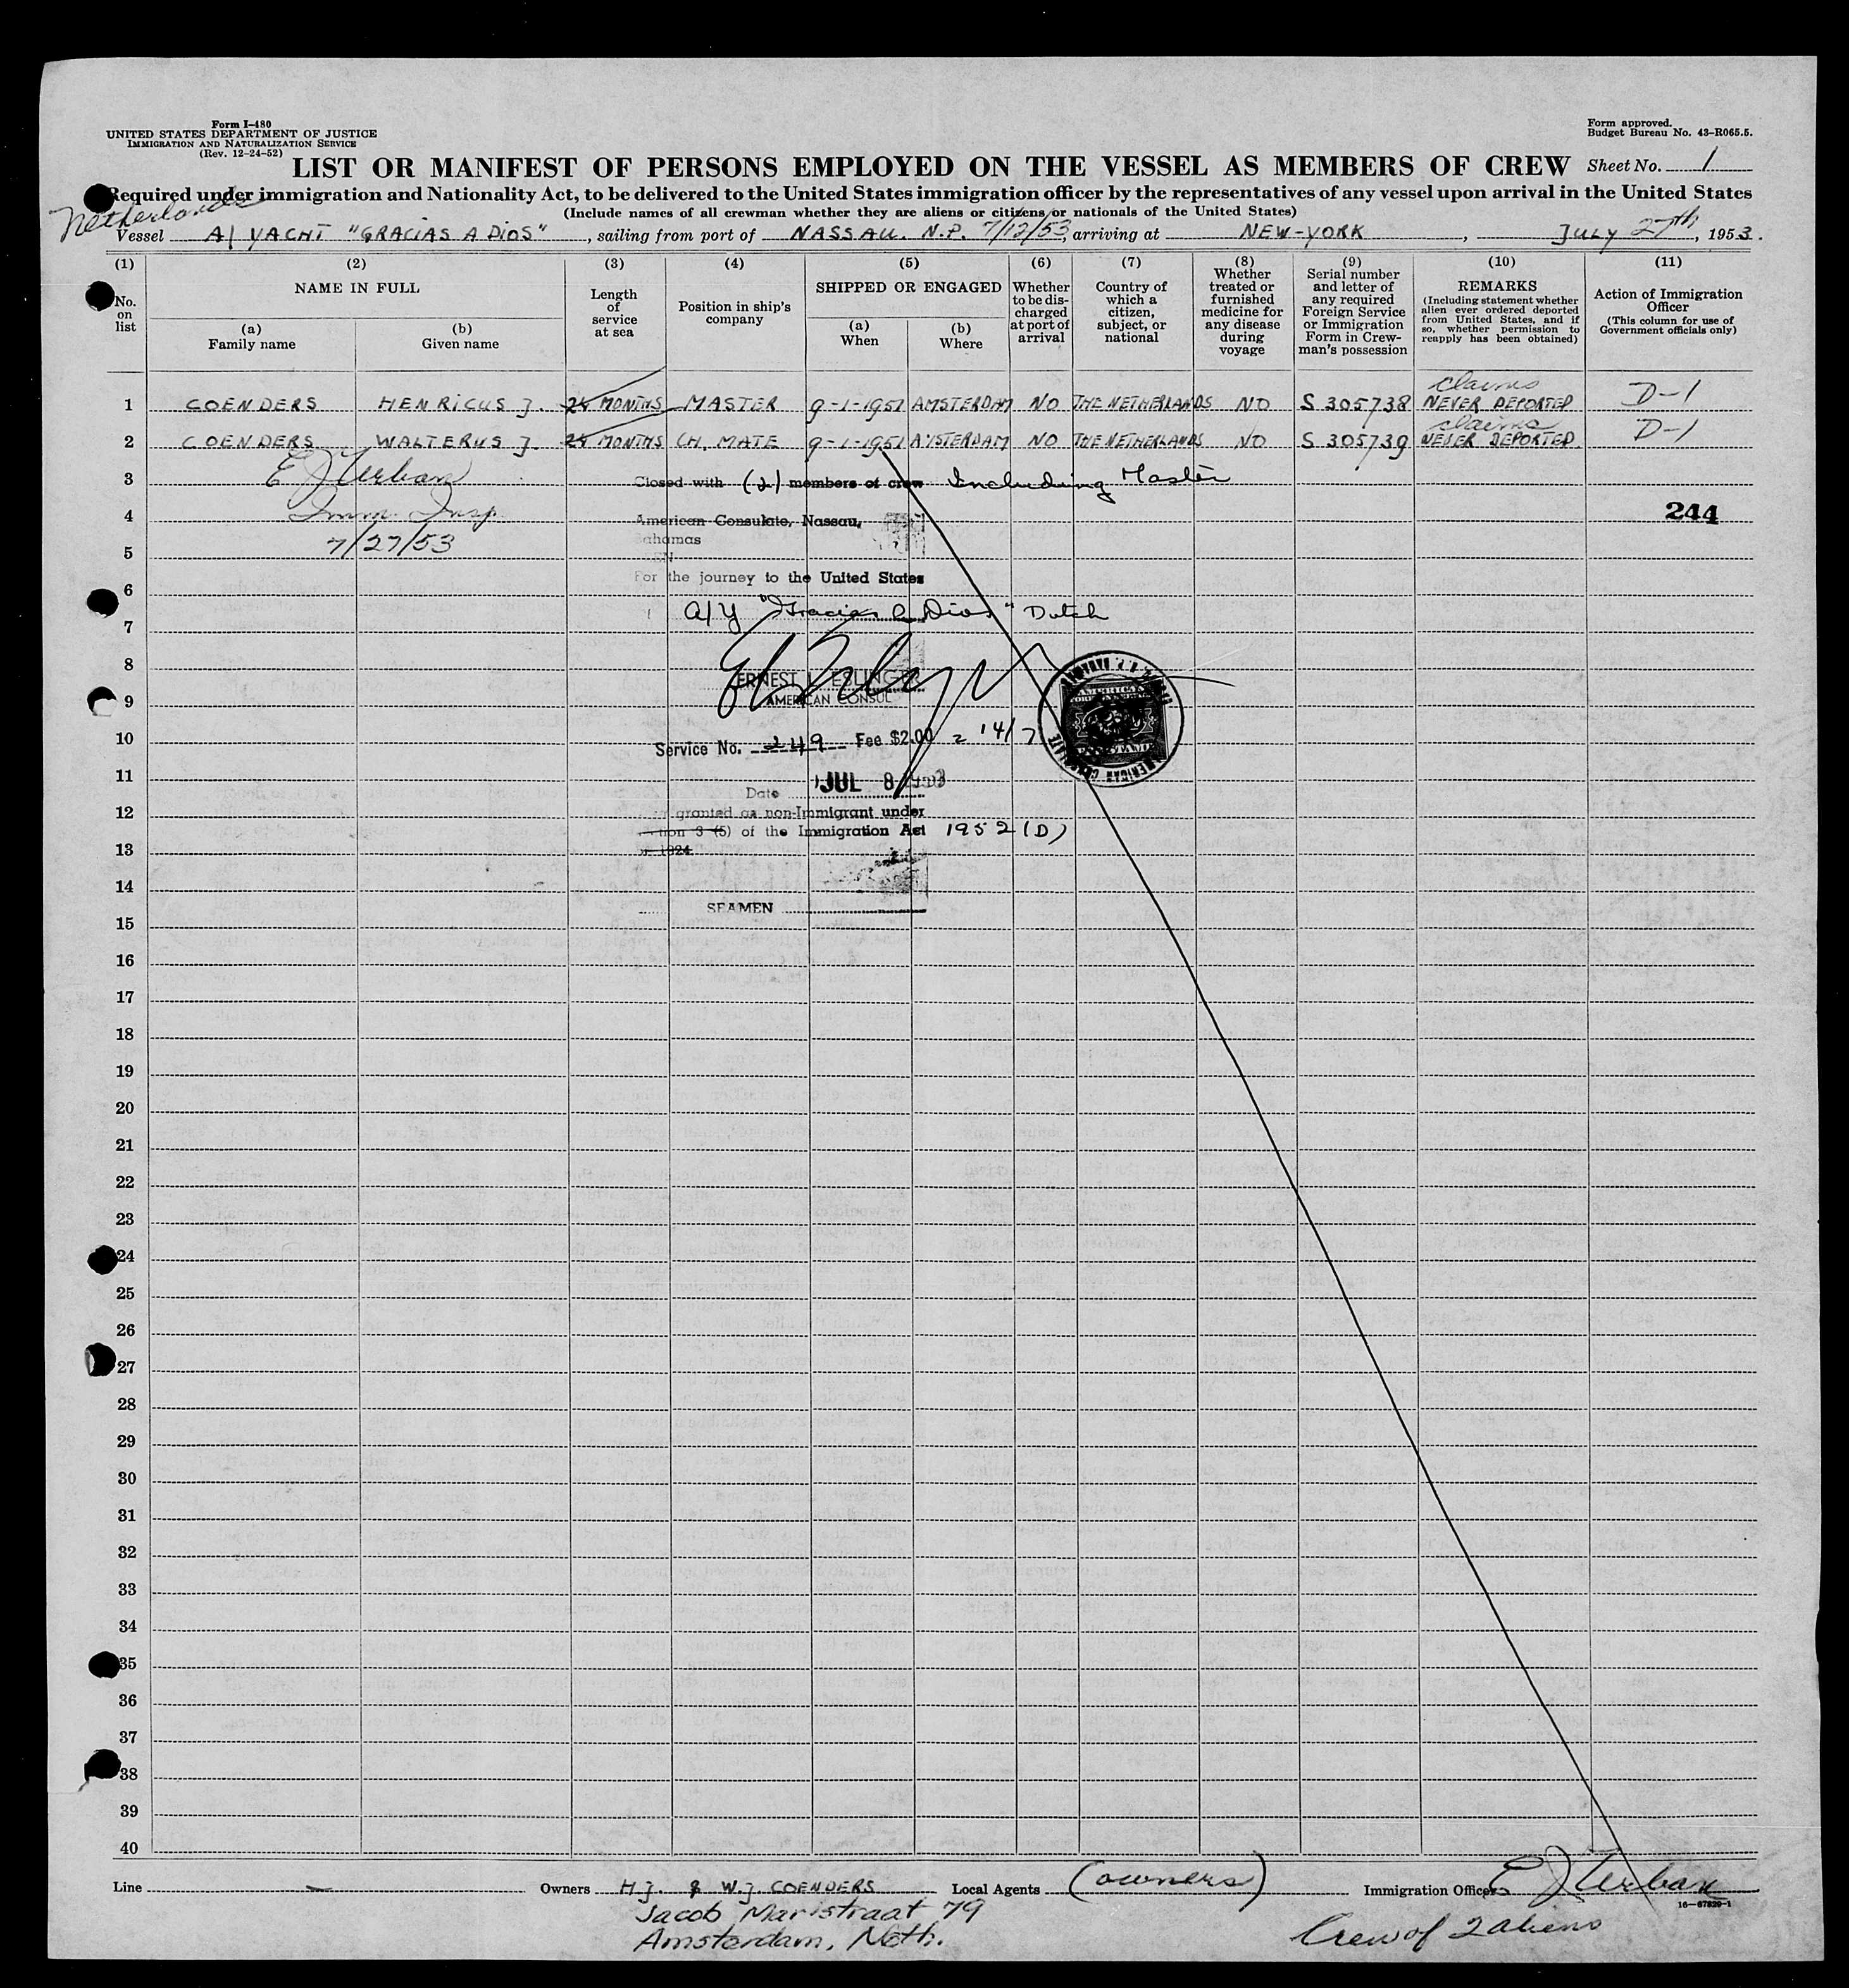 Form I-480
UNITED STATES DEPARTMENT OF JUSTICE
IMMIGRATION AND NATURALIZATION SERVICE
(Rev. 12-24-52)
Form approved.
Budget Bureau No. 43-R065.5.
LIST OR MANIFEST OF PERSONS EMPLOYED ON THE VESSEL AS MEMBERS OF CREW Sheet No. 1
Required under immigration and Nationality Act, to be delivered to the United States immigration officer by the representatives of any vessel upon arrival in the United States
(Include names of all crewman whether they are aliens or citizens or nationals of the United States)
Netherlands
Vessel A/ YACHT "GRACIAS A DIOS", sailing from port of NASSAU. N.P. 7/12/53, arriving at NEW-YORK, JULY 27th, 1953.
(1) (2) (3) (4) (5) (6) (7) (8) (9) (10) (11)
No. on list
NAME IN FULL
(a) Family name
(b) Given name
Length of service at sea
Position in ship's company
SHIPPED OR ENGAGED
(a) When
(b) Where
Whether to be discharged at port of arrival
Country of which a citizen, subject, or national
Whether treated or furnished medicine for any disease during voyage
Serial number and letter of any required Foreign Service or Immigration Form in Crewman's possession
REMARKS
(Including statement whether alien ever ordered deported from United States, and if so, whether permission to reapply has been obtained)
Action of Immigration Officer
(This column for use of Government officials only)
claims
1 COENDERS HENRICUS J. 24 MONTHS MASTER 9-1-1951 AMSTERDAM NO THE NETHERLANDS NO S 305738 NEVER DEPORTED D-1
claims
2 COENDERS WALTERUS J. 24 MONTHS CH. MATE 9-1-1951 AMSTERDAM NO THE NETHERLANDS NO S 305739 NEVER DEPORTED D-1
E J Urban
3 Closed with (2) members of crew Including Master
Imm. Insp.
4 American Consulate, Nassau, 244
7/27/53
ahamas
5
For the journey to the United States
6
A/Y "Gracias a Dios" Dutch
7
8
ERNEST L. ESLINGER
AMERICAN CONSUL
9
10 Service No. 249 Fee $2.00 = 14/7
11
Date JUL 8 1953
12 granted as non-Immigrant under
tion 3 (5) of the Immigration Act 1952 (D)
13 1924
14
SEAMEN
15
16
17
18
19
20
21
22
23
24
25
26
27
28
29
30
31
32
33
34
35
36
37
38
39
40
Line — Owners H.J. & W.J. COENDERS Local Agents (owners) Immigration Officer E J Urban
16—67829-1
Jacob Marisstraat 79
Amsterdam, Neth.
Crew of 2 aliens